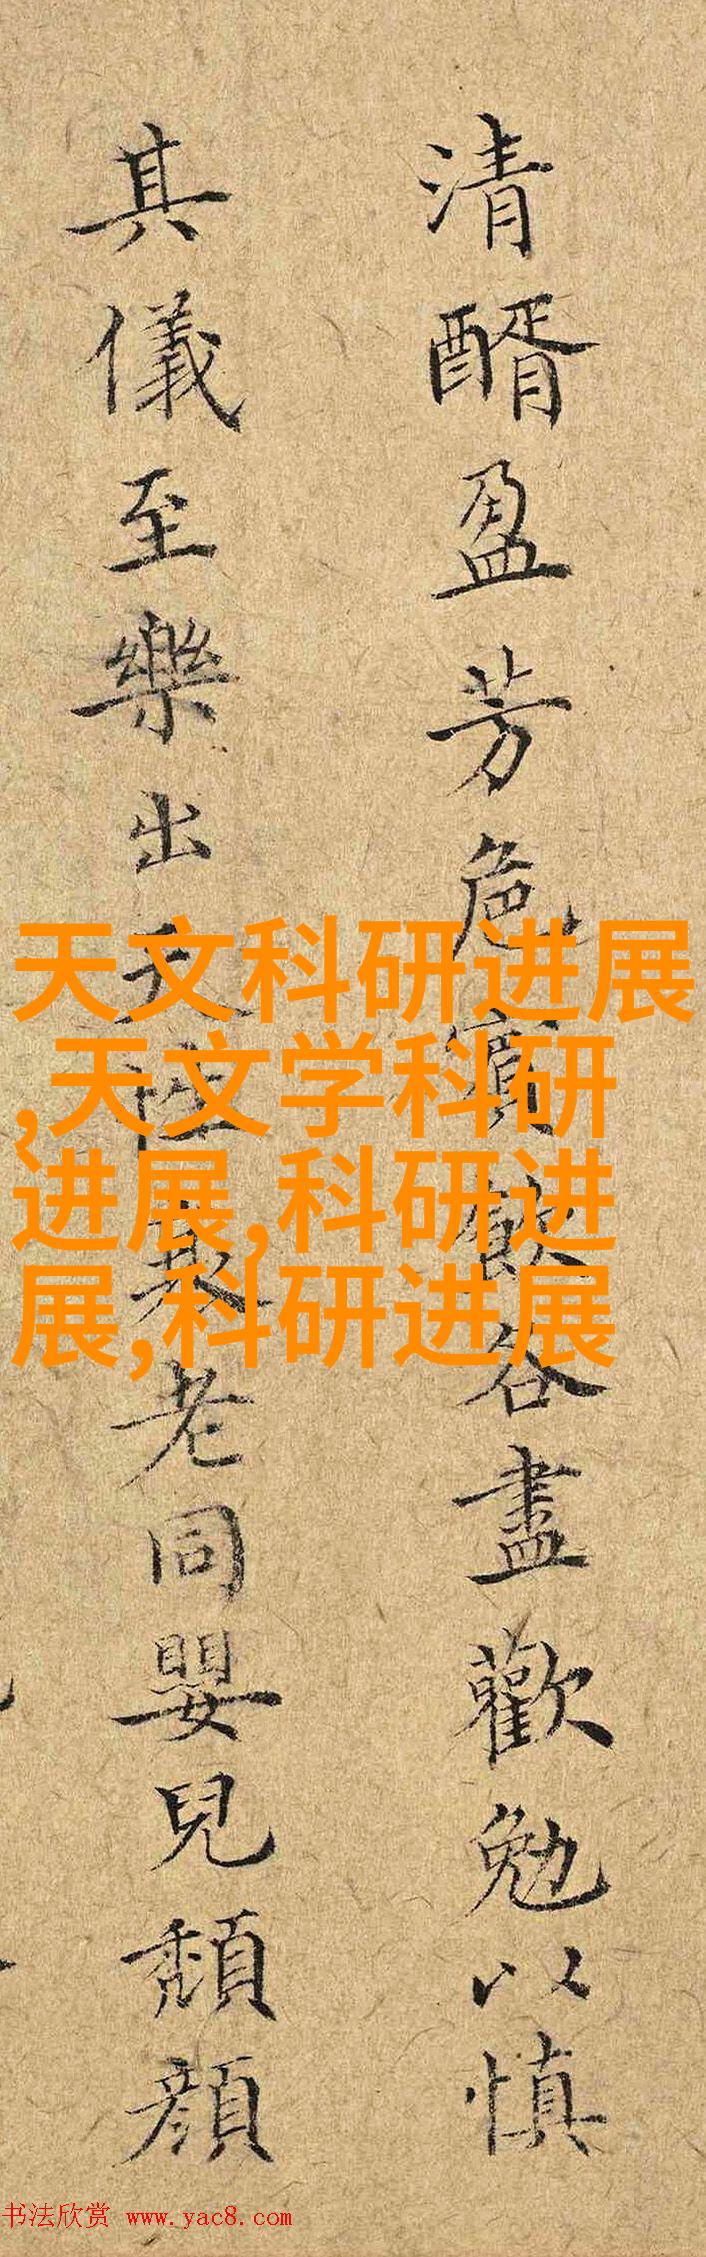 清醑盈芳卮賓飲各盡歡勉以慎
其儀至樂出天性裁老同嬰兒頹顔
天文科研进展
,天文学科研
进展,科研进
展,科研进展
书法欣赏 www.yac8.com